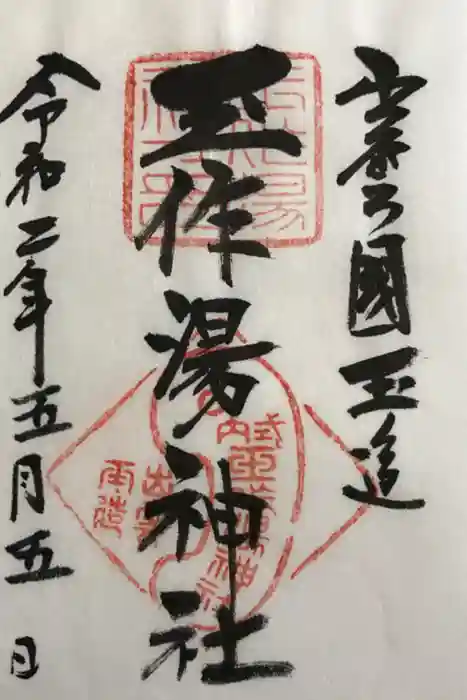 出雲國玉造
玉作湯神社
令和二年五月五日
式内
玉作湯神社
出雲
玉造